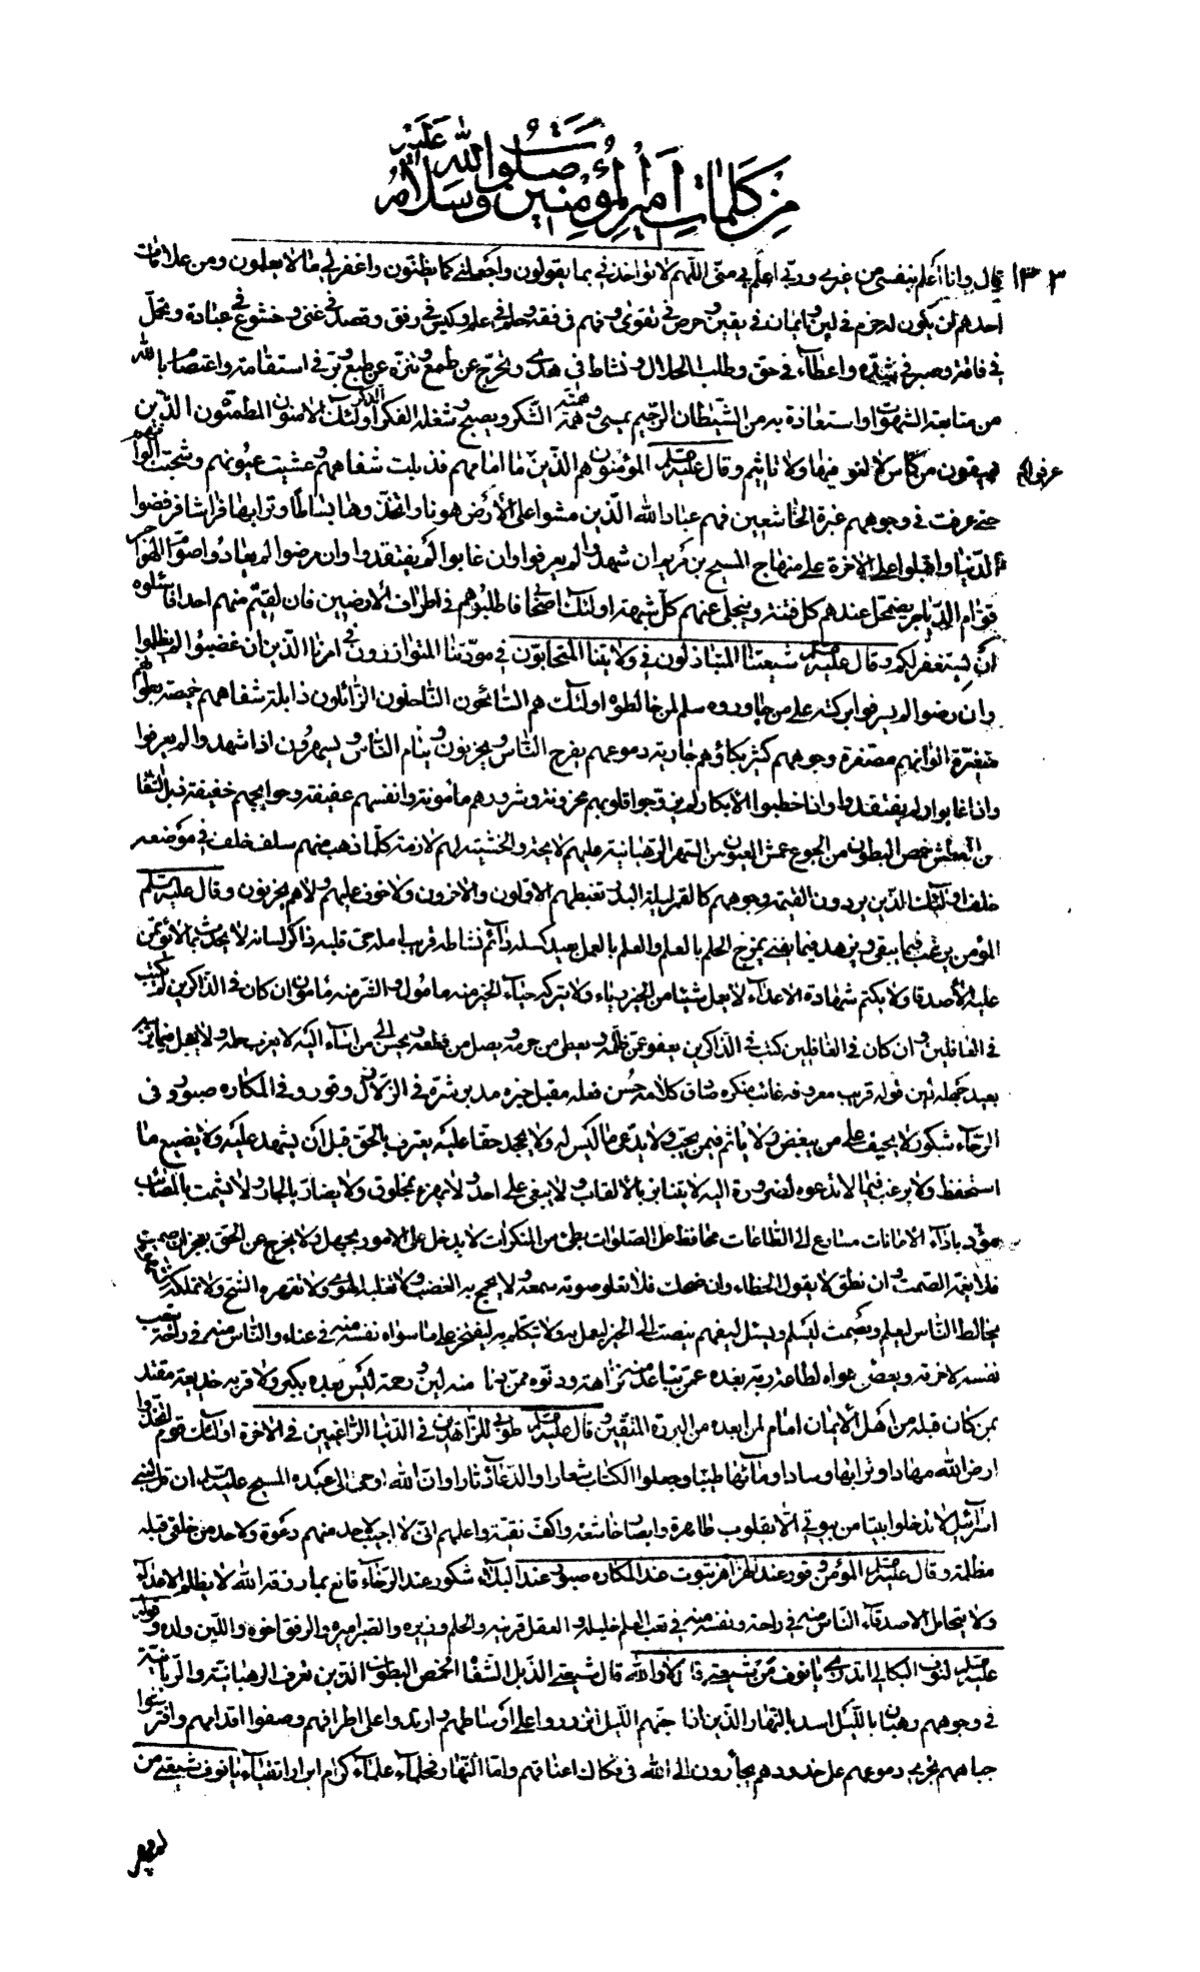 من كلمات أمير المؤمنين صلوات الله عليه وسلامه
١٣٣ قال وانا اعلم بنفسي من غيري وربي اعلم بي مني اللهم لا تؤاخذني بما يقولون واجعلني كما يظنون واغفر لي ما لا يعلمون ومن علامات
احدهم ان يكون له حزم في لين وايمان في يقين وحرص في تقوى وفهم في فقه وحلم في علم وكيس في رفق وقصد في غنى وخشوع في عبادة وتحمل
في فاقة وصبر في شدة واعطاء في حق وطلب الحلال ونشاط في هدى وتحرج عن طمع وتنزه عن طبع وبر في استقامة واعتصام بالله
من متابعة الشهوات واستعاذة به من الشيطان الرجيم يمسي وهمه الشكر ويصبح وشغله الفكر اولئك الامنون المطمئنون الذين
يسقون من كأس لا لغو فيها ولا تاثيم وقال عليه السلام المؤمنون هم الذين عرفوا ما امامهم فذبلت شفاههم وعشيت عيونهم وشحبت الوانهم
حتى عرفت في وجوههم غبرة الخاشعين فهم عباد الله الذين مشوا على الارض هونا واتخذوها بساطا وترابها فراشا فرفضوا
الدنيا واقبلوا على الاخرة على منهاج المسيح بن مريم ان شهدوا لم يعرفوا وان غابوا لم يفتقدوا وان مرضوا لم يعادوا صوام الهواجر
قوام الدياجر يضمحل عندهم كل فتنة وينجلي عنهم كل شبهة اولئك اصحابي فاطلبوهم في اطراف الارضين فان لقيتم منهم احدا فاسئلوه
ان يستغفر لكم وقال عليه السلام شيعتنا المتباذلون في ولايتنا المتحابون في مودتنا المتوازرون في امرنا الذين ان غضبوا لم يظلموا
وان رضوا لم يسرفوا بركة على من جاوروه سلم لمن خالطوه اولئك هم السائحون الناحلون الزائلون ذابلة شفاههم خميصة بطونهم
متغيرة الوانهم مصفرة وجوههم كثير بكاؤهم جارية دموعهم يفرح الناس ويحزنون وينام الناس ويسهرون اذا شهدوا لم يعرفوا
واذا غابوا لم يفتقدوا واذا خطبوا الابكار لم يزوجوا قلوبهم محزونة وشرورهم مامونة وانفسهم عفيفة وحوايجهم خفيفة ذبل الشفاه
من العطش خمص البطون من الجوع عمش العيون من السهر الرهبانية عليهم لايحة والخشية لهم لازمة كلما ذهب منهم سلف خلف في موضعه
خلف اولئك الذين يردون القيمة وجوههم كالقمر ليلة البدر تغبطهم الاولون والاخرون ولا خوف عليهم ولا هم يحزنون وقال عليه السلم
المؤمن يرغب فيما يبقى ويزهد فيما يفنى يمزج الحلم بالعلم والعلم بالعمل بعيد كسله دائم نشاطه قريب امله حي قلبه ذاكر لسانه لا يحدث بما لا يؤتمن
عليه الاصدقاء ولا يكتم شهادة الاعداء لا يعمل شيئا من الخير رياء ولا يتركه حياء الخير منه مامول والشر منه مامون ان كان في الذاكرين لم يكتب
في الغافلين وان كان في الغافلين كتب في الذاكرين يعفو عمن ظلمه ويعطي من حرمه ويصل من قطعه ويحسن الى من اساء اليه لا يعزب حلمه ولا يعجل فيما يريبه
بعيد جهله لين قوله قريب معروفه غائب منكره صادق كلامه حسن فعله مقبل خيره مدبر شره في الزلازل وقور وفي المكاره صبور وفي
الرخاء شكور لا يحيف على من يبغض ولا ياثم فيمن يحب ولا يدعي ما ليس له ولا يجحد حقا عليه يعترف بالحق قبل ان يشهد عليه ولا يضيع ما
استحفظ ولا يرغب فيما لا تدعوه الضرورة اليه لا يتنابز بالالقاب ولا يبغي على احد ولا يهزء بمخلوق ولا يضار بالجار ولا يشمت بالمصائب
مؤد باداء الامانات مسارع الى الطاعات محافظ على الصلوات بطئ من المنكرات لا يدخل على الامور بجهل ولا يخرج عن الحق بعجز ان صمت
فلا يغمه الصمت وان نطق لا يقول الخطاء وان ضحك فلا تعلو صوته سمعه ولا يجمح به الغضب ولا تغلبه الهوى ولا تقهره الشح ولا تملكه الشهوة
يخالط الناس ليعلم ويصمت ليسلم ويسئل ليفهم ينصت الى الخير ليعمل به ولا يتكلم به ليفتخر على ما سواه نفسه منه في عناء والناس منه في راحة يتعب
نفسه لاخرته ويعصي هواه لطاعة ربه بعده عمن تباعد منه نزاهة ودنوه ممن دنا منه لين ورحمة ليس بعده بكبر ولا قربه خديعة مقتد
بمن كان قبله من اهل الايمان امام لمن بعده من البررة المتقين وقال عليه السلم طوبى للزاهدين في الدنيا الراغبين في الاخرة اولئك قوم اتخذوا
ارض الله مهادا وترابها وسادا وماءها طيبا وجعلوا الكتاب شعارا والدعاء دثارا وان الله اوحى الى عبده المسيح عليه السلم ان قل لبني
اسرائيل لا تدخلوا بيتا من بيوتي الا بقلوب طاهرة وابصار خاشعة واكف نقية واعلمهم اني لا اجيب لاحد منهم دعوة ولاحد من خلقي قبله
مظلمة وقال عليه السلم المؤمن وقور عند الهزاهز ثبوت عند المكاره صبور عند البلاء شكور عند الرخاء قانع بما رزقه الله لا يظلم الاعداء
ولا يتحامل الاصدقاء الناس منه في راحة ونفسه منه في تعب العلم خليله والعقل قرينه والحلم وزيره والصبر اميره والرفق اخوه واللين والده وقوله
عليه السلم لنوف البكالي اتدري يا نوف من شيعتي قال لا والله قال شيعتي الذبل الشفاه الخمص البطون الذين تعرف الرهبانية والربانية
في وجوههم رهبان بالليل اسد بالنهار الذين اذا جنهم الليل اتزروا على اوساطهم وارتدوا على اطرافهم وصفوا اقدامهم وافترشوا
جباههم تجري دموعهم على خدودهم يجأرون الى الله في فكاك اعناقهم واما النهار فحلماء علماء كرام ابرار اتقياء يا نوف شيعتي من